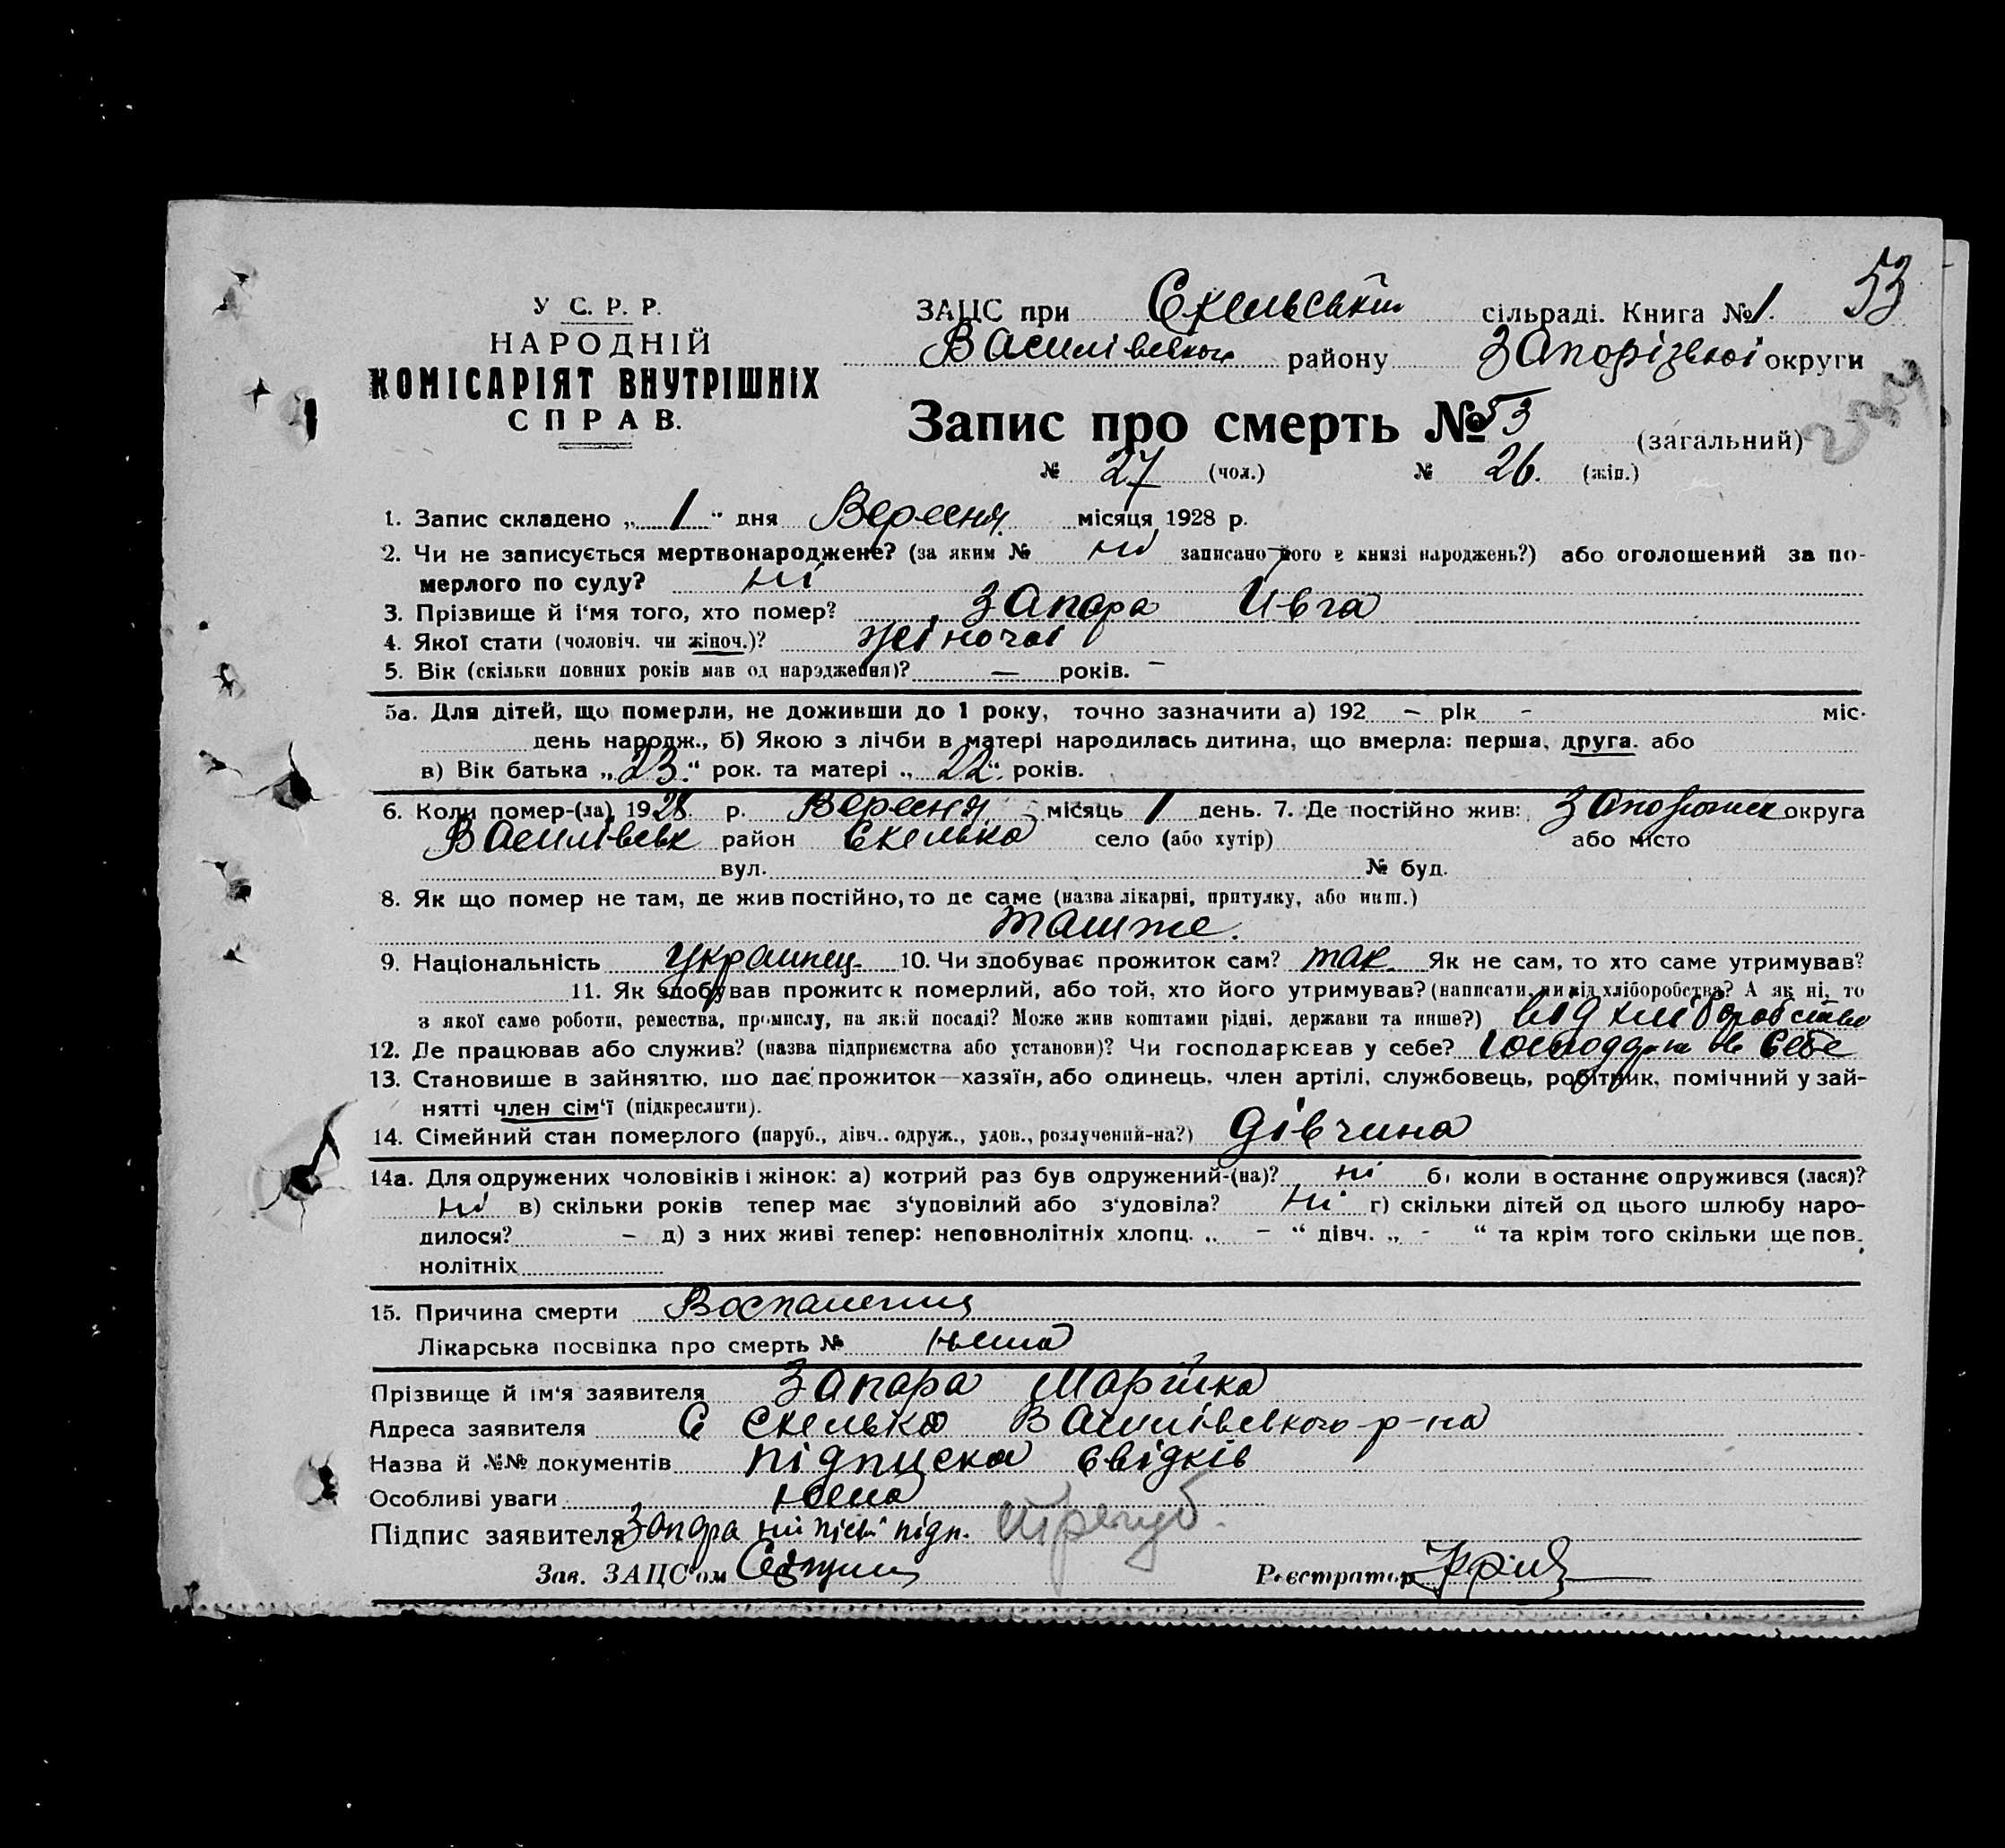 53
У С. Р. Р.
НАРОДНІЙ
КОМІСАРІЯТ ВНУТРІШНІХ
СПРАВ.
ЗАЦС при Скельській сільраді. Книга №1.
Василівського району Запорізької округи
Запис про смерть № 53 (загальний)
№ 27 (чол.) № 26. (жін.)
1. Запис складено „ 1 “ дня Вересня місяця 1928 р.
2. Чи не записується мертвонароджене? (за яким № ні записано його в книзі народжень?) або оголошений за по-
мерлого по суду? ні
3. Прізвище й і'мя того, хто помер? Запара Ивга
4. Якої стати (чоловіч. чи жіноч.)? жіночої
5. Вік (скільки повних років мав од народження)? — років. –
5а. Для дітей, що померли, не доживши до 1 року, точно зазначити а) 192 – рік - міс.
день народж., б) Якою з лічби в матері народилась дитина, що вмерла: перша, друга. або
в) Вік батька „ 23 “ рок. та матері „ 22 “ років.
6. Коли помер-(ла), 1928 р. Вересня місяць 1 день. 7. Де постійно жив: округа
Василівськ район Скелька село (або хутір) або місто
вул. № буд.
8. Як що помер не там, де жив постійно, то де саме (назва лікарні, притулку, або инш.)
9. Національність Украинец 10. Чи здобуває прожиток сам? так Як не сам, то хто саме утримував?
11. Як здобував прожиток померлий, або той, хто його утримував? (написати, чи від хліборобства? А як ні, то
з якої саме роботи, ремества, промислу, на якій посаді? Може жив коштами рідні, держави та инше?) від хліборобства
12. Де працював або служив? (назва підприємства або установи)? Чи господарював у себе? в себе
13. Становище в зайняттю, що дає прожиток—хазяїн, або одинець, член артілі, службовець, робітник, помічний у зай-
нятті член сім'ї (підкреслити).
14. Сімейний стан померлого (паруб., дівч.. одруж., удов., розлучений-на?) дівчина
14а. Для одружених чоловіків і жінок: а) котрий раз був одружений-(на)? ні б) коли в останнє одружився (лася)?
ні в) скільки років тепер має з'удовілий або з'удовіла? ні г) скільки дітей од цього шлюбу наро-
дилося? – д) з них живі тепер: неповнолітніх хлопц. „ – “ дівч. „ - “ та крім того скільки ще пов.
нолітніх
15. Причина смерти Воспаления
Лікарська посвідка про смерть № нема
Прізвище й ім'я заявителя Запара Марійка
Адреса заявителя С Скелька Василівського р-на
Назва й №№ документів підписка свідків
Особливі уваги нема
Підпис заявителя Запара підп.
Зав. ЗАЦС'ом
Реєстратор